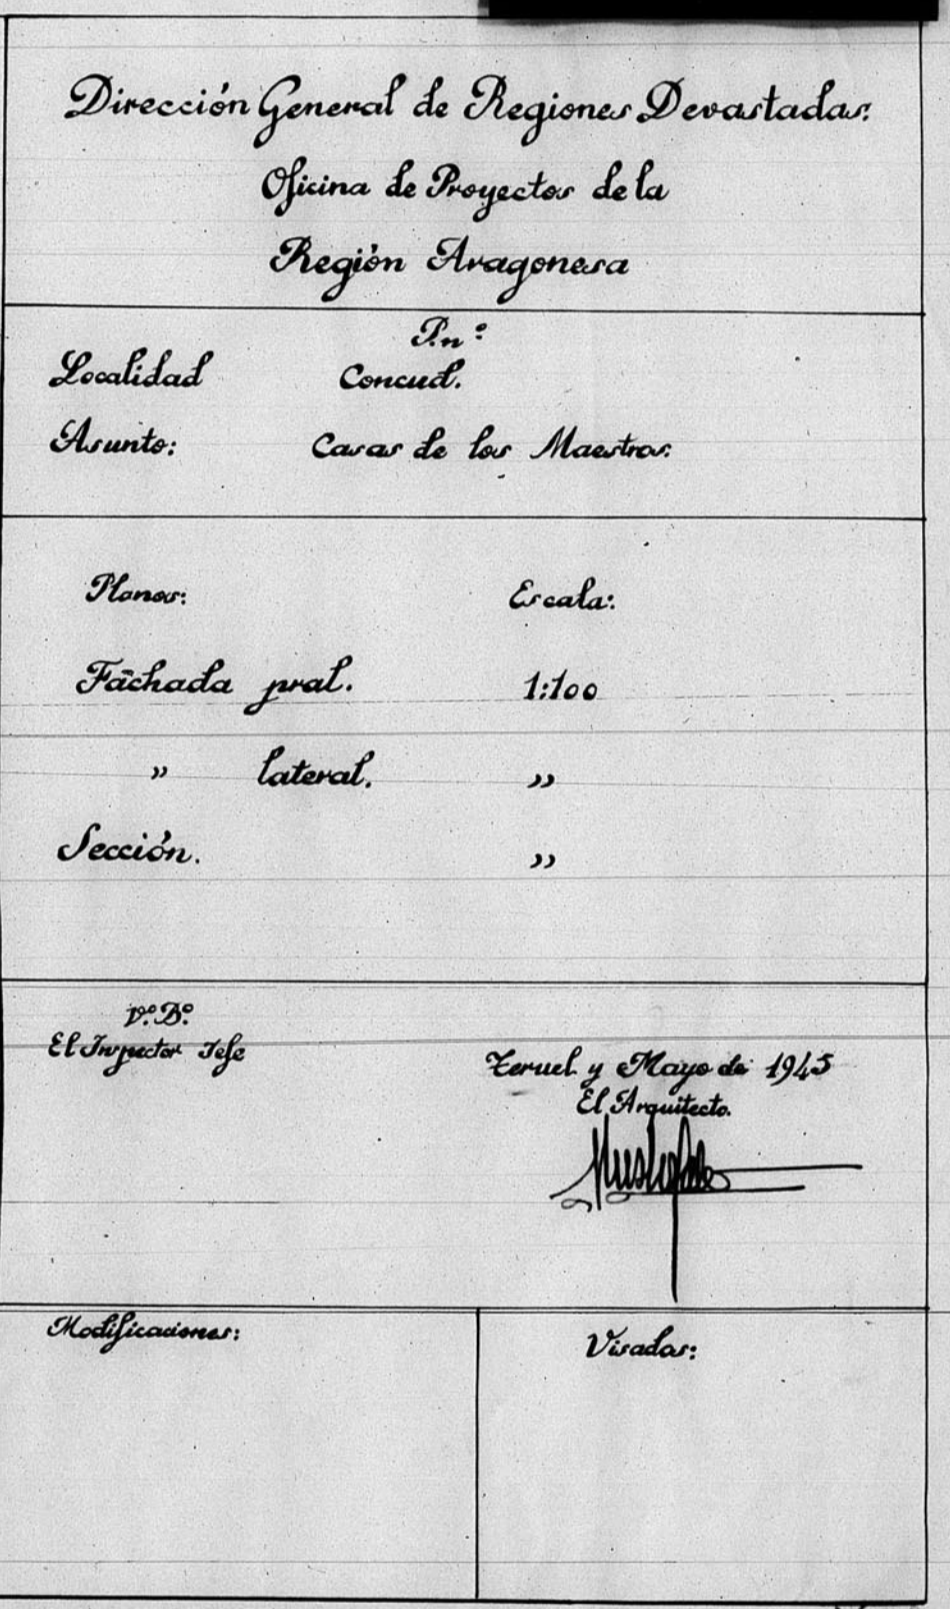 Dirección General de Regiones Devastadas.
Oficina de Proyectos de la
Región Aragonesa
P.nº
Localidad Concud.
Asunto: Casas de los Maestros.
Planos: Escala:
Fachada pral. 1:100
" lateral. "
Sección. "
Vº.Bº.
El Inspector Jefe
Teruel y Mayo de 1945
El Arquitecto.
Modificaciones:
Visados: